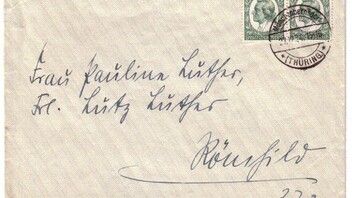 (THÜRING)
Frau Pauline Luther,
Frl. Lutz Luther
Römhild